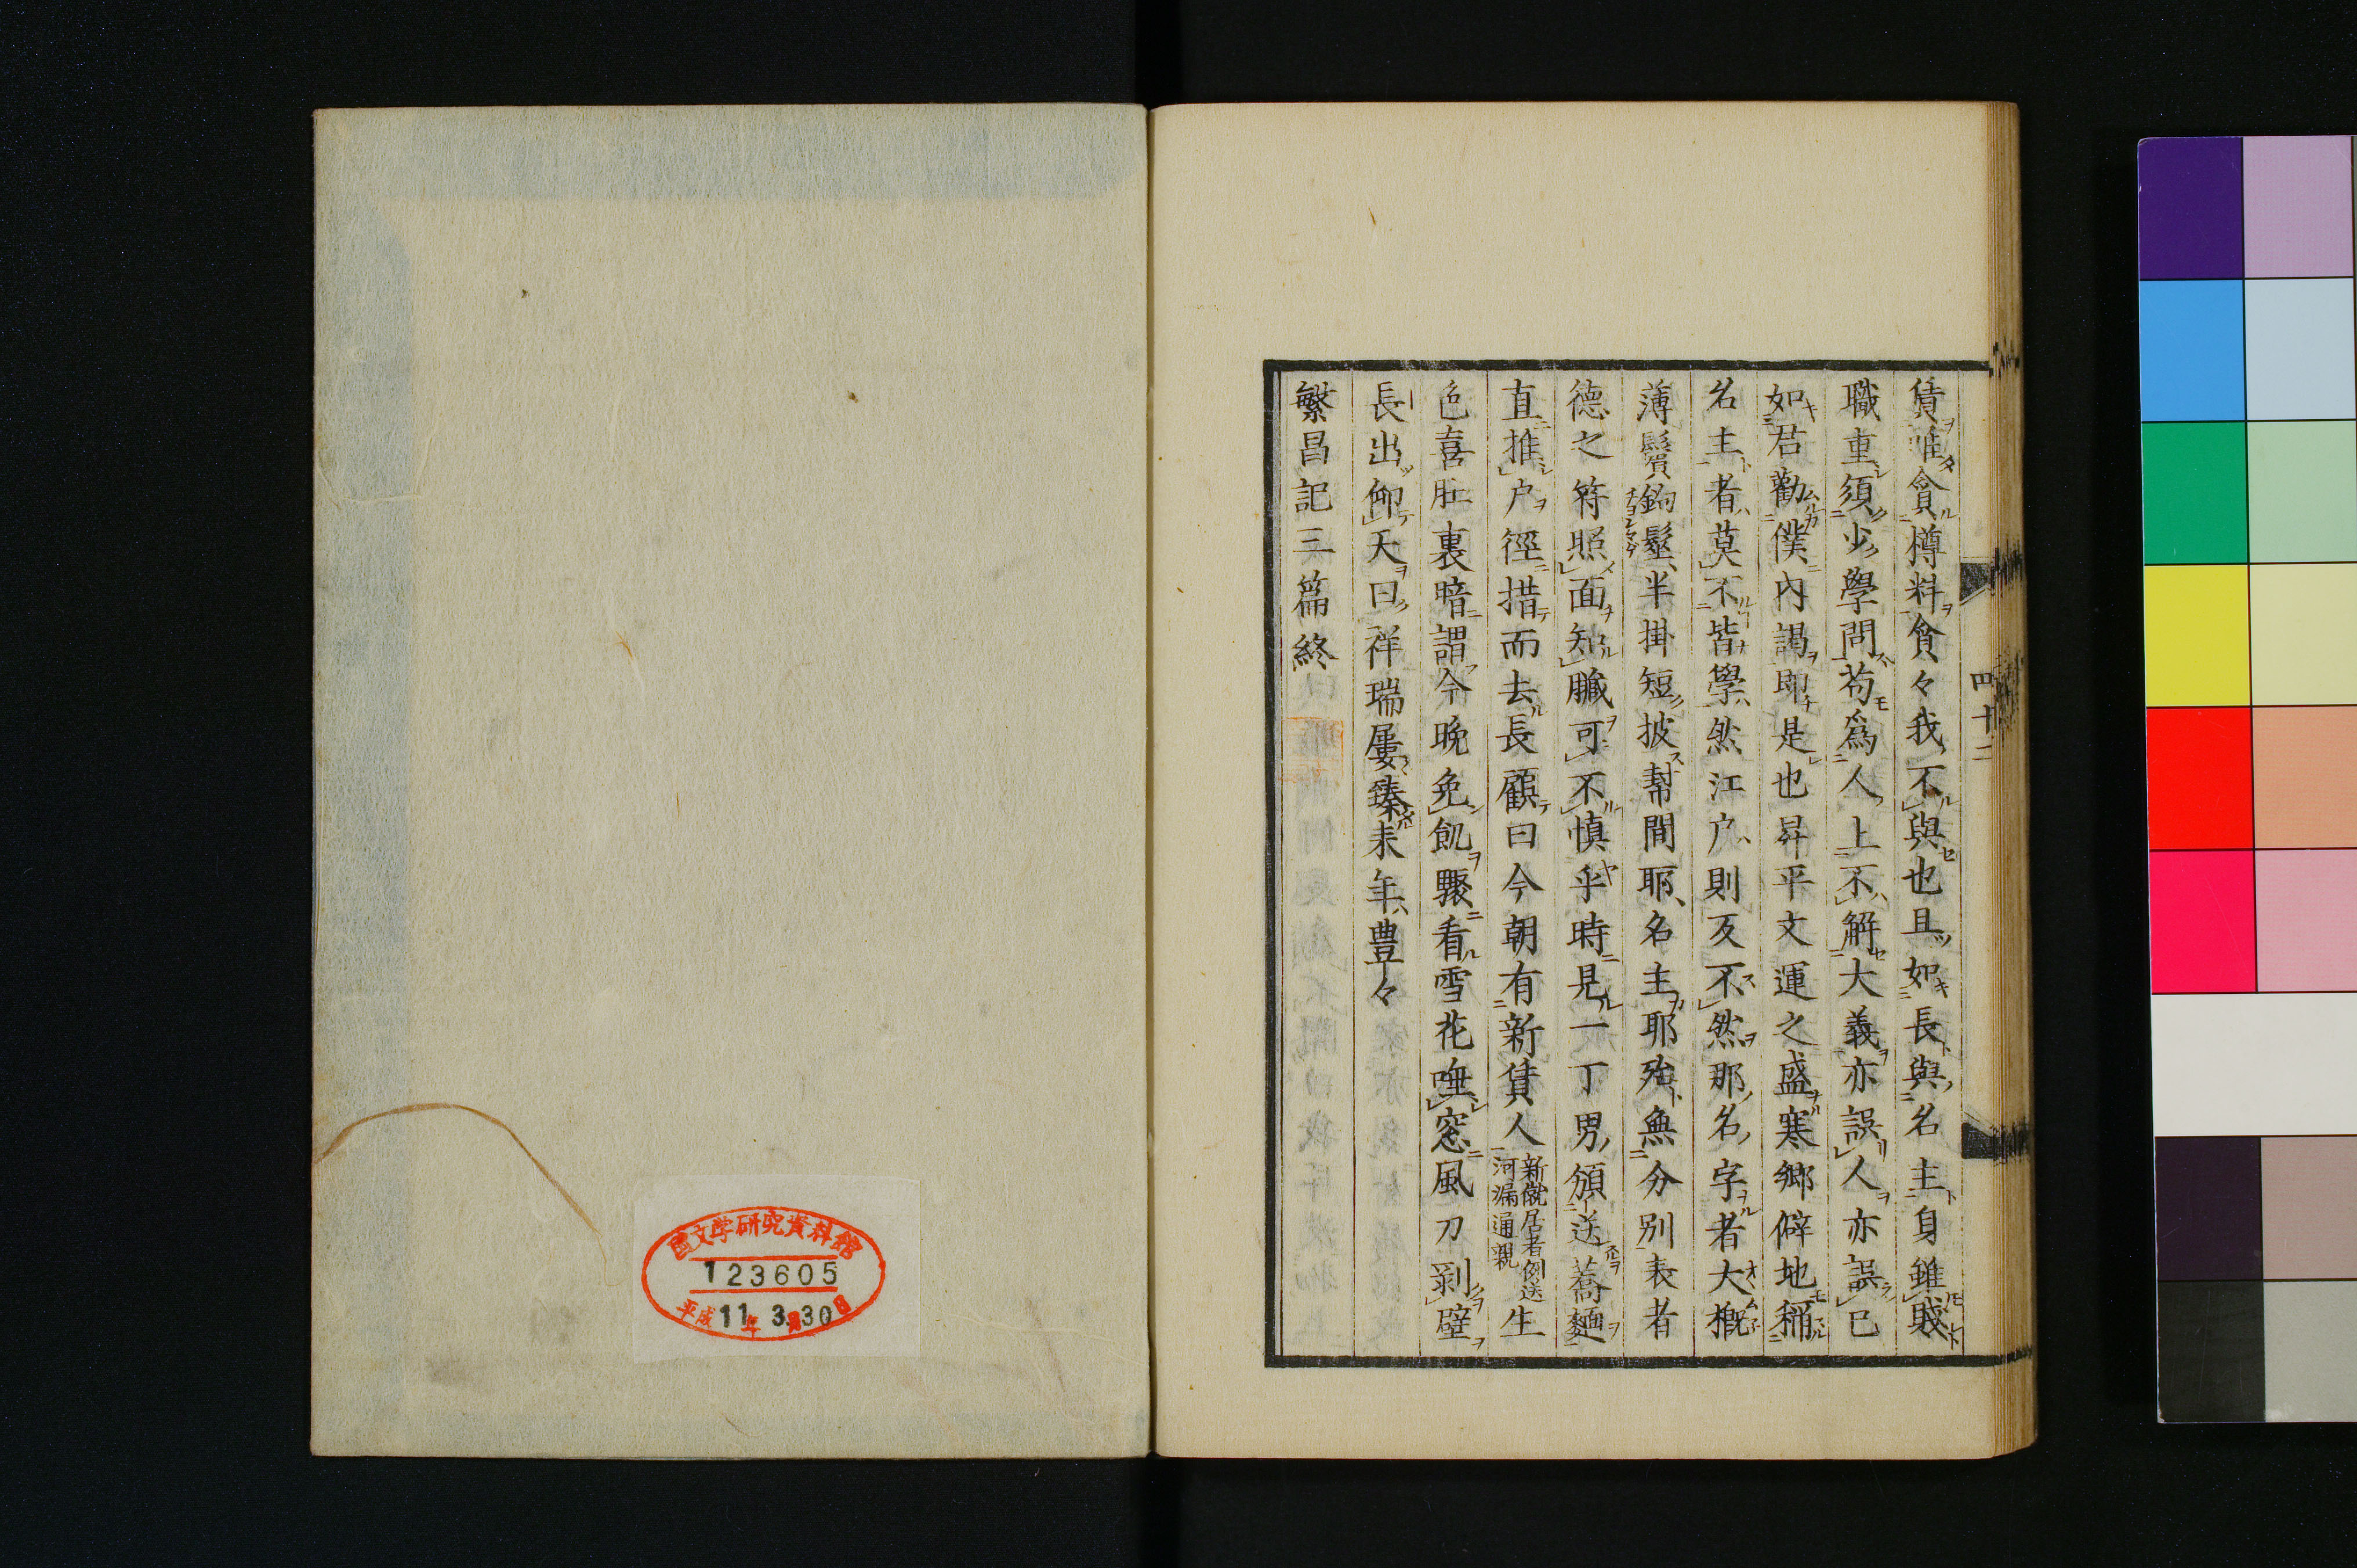 賃唯貪樽料貪々我不與也且如長與名主身雖賤
職重須少學問苟爲人上不解大義亦誤人亦誤已
如君勸僕內謁即是也昇平文運之盛寒鄉僻地稱
名主者莫不皆學然江户則反不然那名字者大概
薄鬢鉤髷半掛短披幇間耶名主耶殆無分別表者
德之符照面知臓可不慎乎時見一丁男頒送蕎麵
直推户徑措而去長顧曰今朝有新賃人新僦居者例送河漏通親生
色喜肚裏暗謂今晚免飢驟看雪花唾窓風刀剝壁
長出仰天曰祥瑞屢臻耒年豊々
繁昌記三篇終
四十二
國文学研究資料館
123605
平成11年3月30日